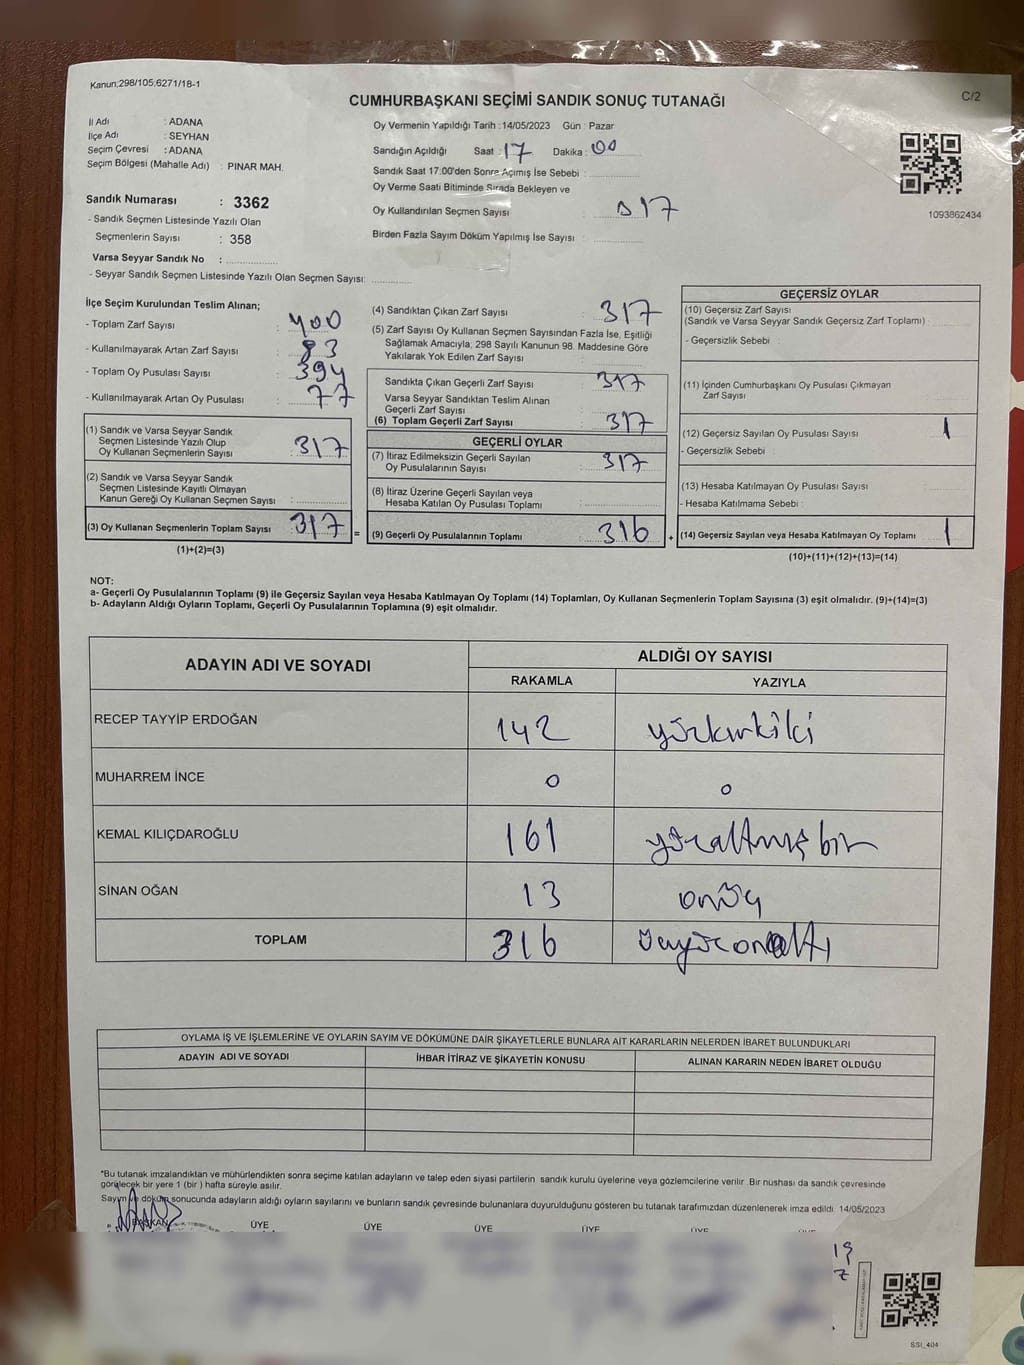 Kanun;298/105;6271/18-1
C/2
CUMHURBAŞKANI SEÇİMİ SANDIK SONUÇ TUTANAĞI
İl Adı : ADANA
İlçe Adı : SEYHAN
Seçim Çevresi : ADANA
Seçim Bölgesi (Mahalle Adı) : PINAR MAH.
Sandık Numarası : 3362
- Sandık Seçmen Listesinde Yazılı Olan
Seçmenlerin Sayısı : 358
Varsa Seyyar Sandık No :
- Seyyar Sandık Seçmen Listesinde Yazılı Olan Seçmen Sayısı:
Oy Vermenin Yapıldığı Tarih :14/05/2023 Gün : Pazar
Sandığın Açıldığı Saat : 17 Dakika : 00
Sandık Saat 17:00'den Sonra Açımış İse Sebebi :
Oy Verme Saati Bitiminde Sırada Bekleyen ve
Oy Kullandırılan Seçmen Sayısı : 317
Birden Fazla Sayım Döküm Yapılmış İse Sayısı :
1093862434
İlçe Seçim Kurulundan Teslim Alınan;
- Toplam Zarf Sayısı : 400
- Kullanılmayarak Artan Zarf Sayısı : 83
- Toplam Oy Pusulası Sayısı : 394
- Kullanılmayarak Artan Oy Pusulası : 77
(1) Sandık ve Varsa Seyyar Sandık
Seçmen Listesinde Yazılı Olup
Oy Kullanan Seçmenlerin Sayısı : 317
(2) Sandık ve Varsa Seyyar Sandık
Seçmen Listesinde Kayıtlı Olmayan
Kanun Gereği Oy Kullanan Seçmen Sayısı :
(3) Oy Kullanan Seçmenlerin Toplam Sayısı : 317
(1)+(2)=(3)
=
(4) Sandıktan Çıkan Zarf Sayısı : 317
(5) Zarf Sayısı Oy Kullanan Seçmen Sayısından Fazla İse, Eşitliği
Sağlamak Amacıyla; 298 Sayılı Kanunun 98. Maddesine Göre
Yakılarak Yok Edilen Zarf Sayısı :
Sandıkta Çıkan Geçerli Zarf Sayısı : 317
Varsa Seyyar Sandıktan Teslim Alınan
Geçerli Zarf Sayısı
(6) Toplam Geçerli Zarf Sayısı : 317
GEÇERLİ OYLAR
(7) İtiraz Edilmeksizin Geçerli Sayılan
Oy Pusulalarının Sayısı : 317
(8) İtiraz Üzerine Geçerli Sayılan veya
Hesaba Katılan Oy Pusulası Toplamı
(9) Geçerli Oy Pusulalarının Toplamı : 316
+
GEÇERSİZ OYLAR
(10) Geçersiz Zarf Sayısı
(Sandık ve Varsa Seyyar Sandık Geçersiz Zarf Toplamı) :
- Geçersizlik Sebebi :
(11) İçinden Cumhurbaşkanı Oy Pusulası Çıkmayan
Zarf Sayısı
(12) Geçersiz Sayılan Oy Pusulası Sayısı : 1
- Geçersizlik Sebebi :
(13) Hesaba Katılmayan Oy Pusulası Sayısı :
- Hesaba Katılmama Sebebi :
(14) Geçersiz Sayılan veya Hesaba Katılmayan Oy Toplamı 1
(10)+(11)+(12)+(13)=(14)
NOT:
a- Geçerli Oy Pusulalarının Toplamı (9) ile Geçersiz Sayılan veya Hesaba Katılmayan Oy Toplamı (14) Toplamları, Oy Kullanan Seçmenlerin Toplam Sayısına (3) eşit olmalıdır. (9)+(14)=(3)
b- Adayların Aldığı Oyların Toplamı, Geçerli Oy Pusulalarının Toplamına (9) eşit olmalıdır.
ADAYIN ADI VE SOYADI ALDIĞI OY SAYISI
RAKAMLA YAZIYLA
RECEP TAYYİP ERDOĞAN 142 yüzkırkiki
MUHARREM İNCE 0 0
KEMAL KILIÇDAROĞLU 161 yüzaltmış bir
SİNAN OĞAN 13 onüç
TOPLAM 316 üçyüzonaltı
OYLAMA İŞ VE İŞLEMLERİNE VE OYLARIN SAYIM VE DÖKÜMÜNE DAİR ŞİKAYETLERLE BUNLARA AİT KARARLARIN NELERDEN İBARET BULUNDUKLARI
ADAYIN ADI VE SOYADI İHBAR İTİRAZ VE ŞİKAYETİN KONUSU ALINAN KARARIN NEDEN İBARET OLDUĞU
*Bu tutanak imzalandıktan ve mühürlendikten sonra seçime katılan adayların ve talep eden siyasi partilerin sandık kurulu üyelerine veya gözlemcilerine verilir. Bir nüshası da sandık çevresinde
görülecek bir yere 1 (bir ) hafta süreyle asılır.
Sayım ve döküm sonucunda adayların aldığı oyların sayılarını ve bunların sandık çevresinde bulunanlara duyurulduğunu gösteren bu tutanak tarafımızdan düzenlenerek imza edildi. 14/05/2023
BAŞKAN ÜYE ÜYE ÜYE ÜYE ÜYE
SSI_404